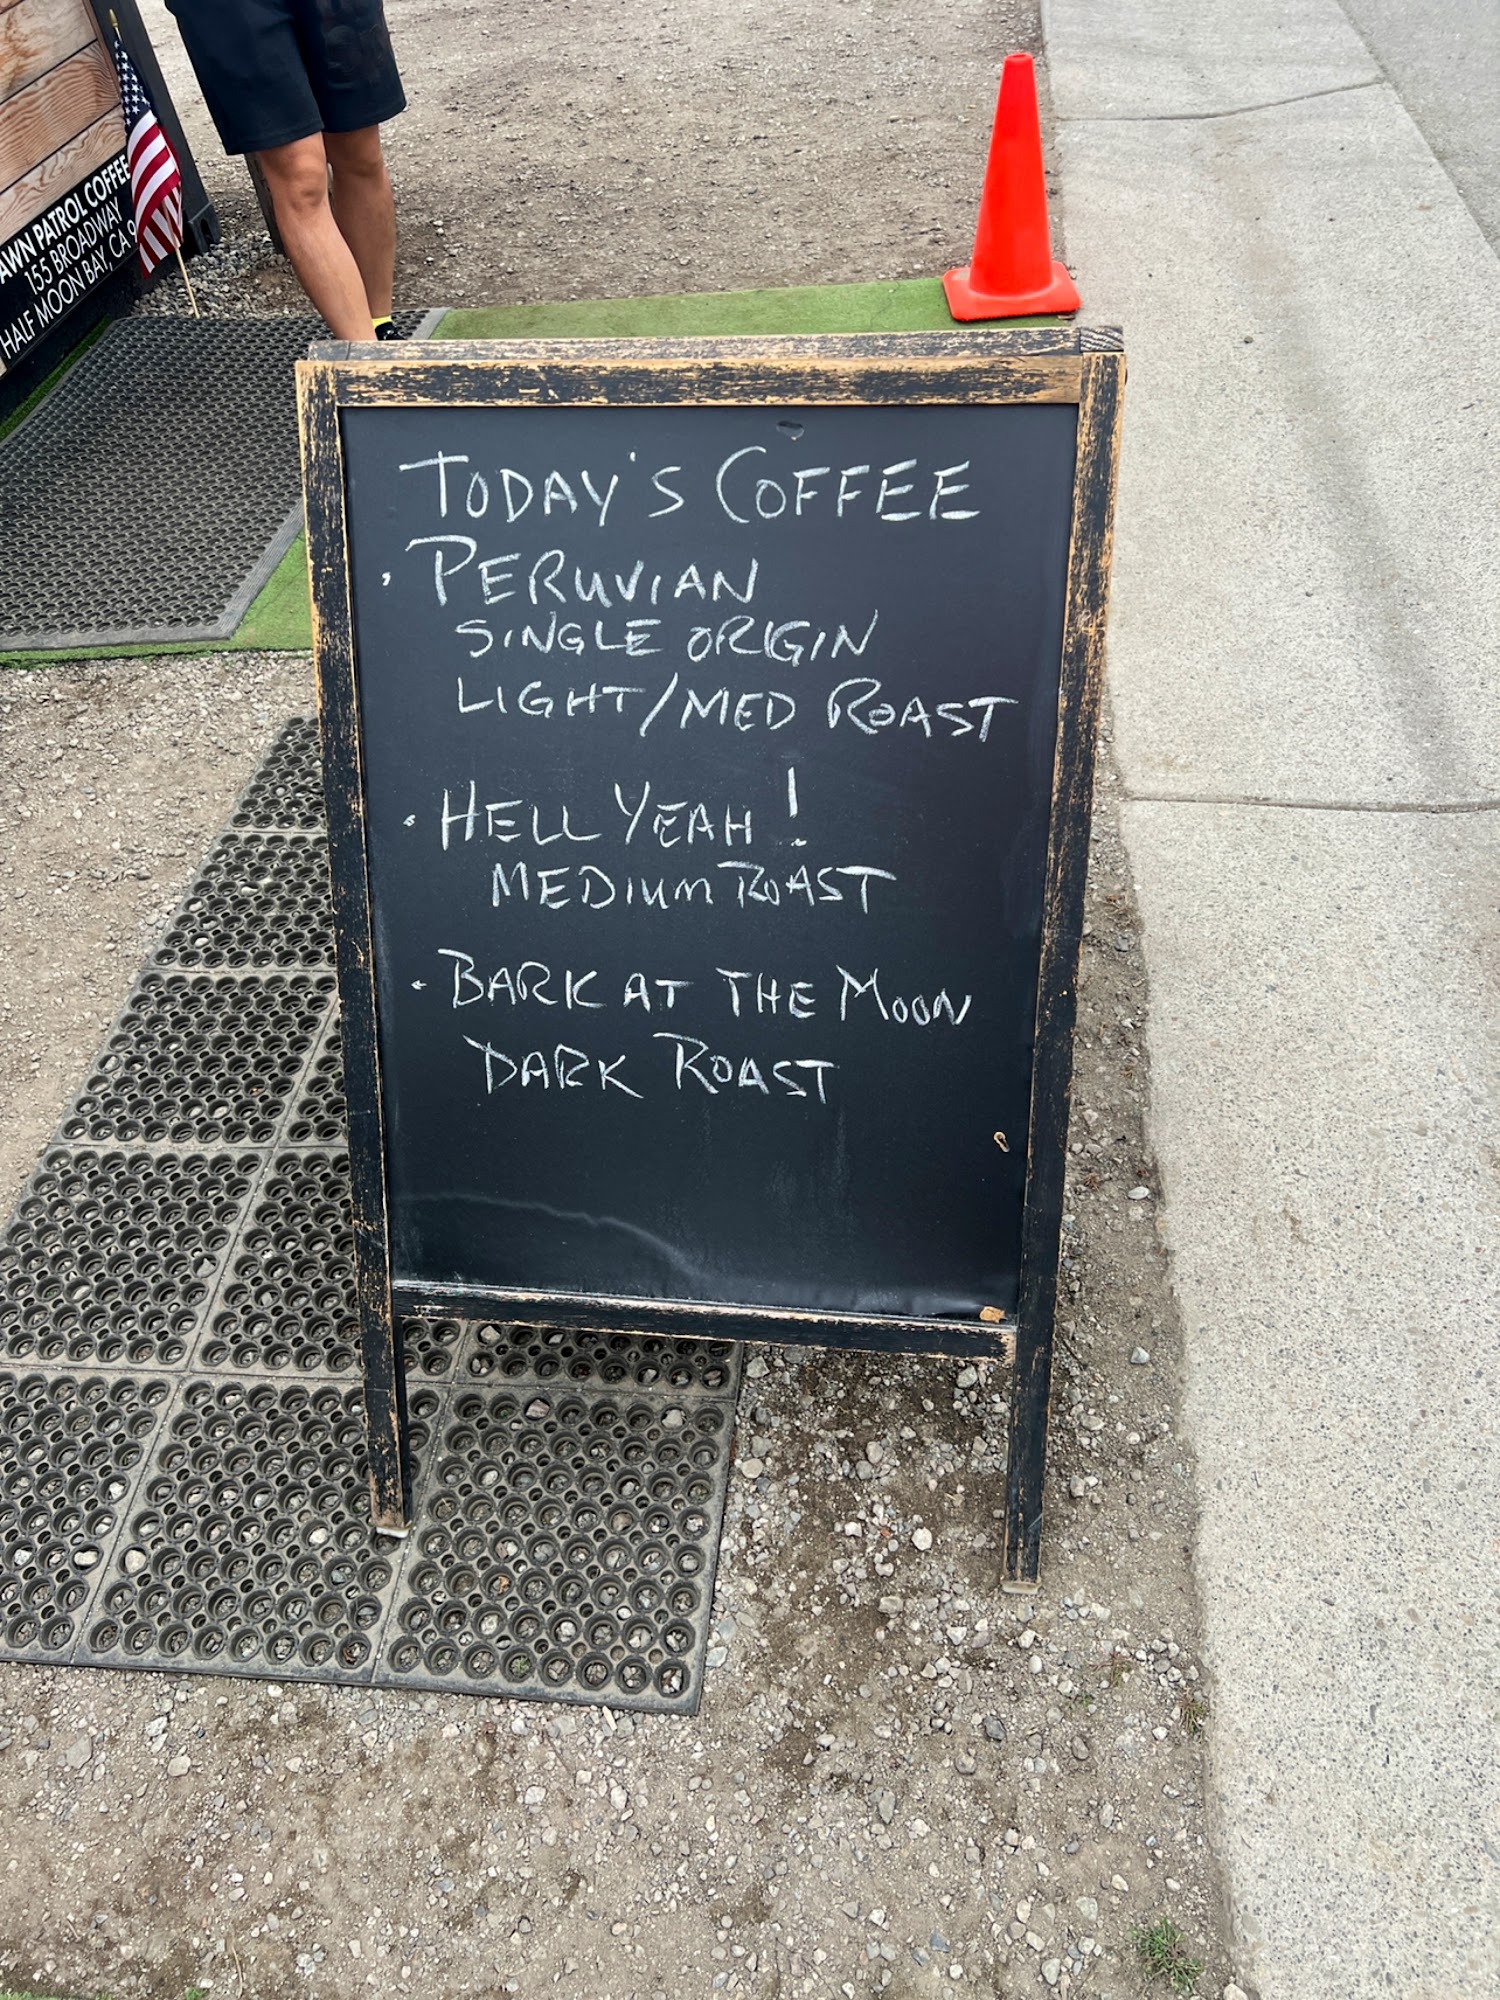 AWN PATROL COFFEE
155 BROADWAY
HALF MOON BAY, CA 9
TODAY'S COFFEE
· PERUVIAN
SINGLE ORIGIN
LIGHT/MED ROAST
· HELL YEAH!
MEDIUM ROAST
· BARK AT THE MOON
DARK ROAST